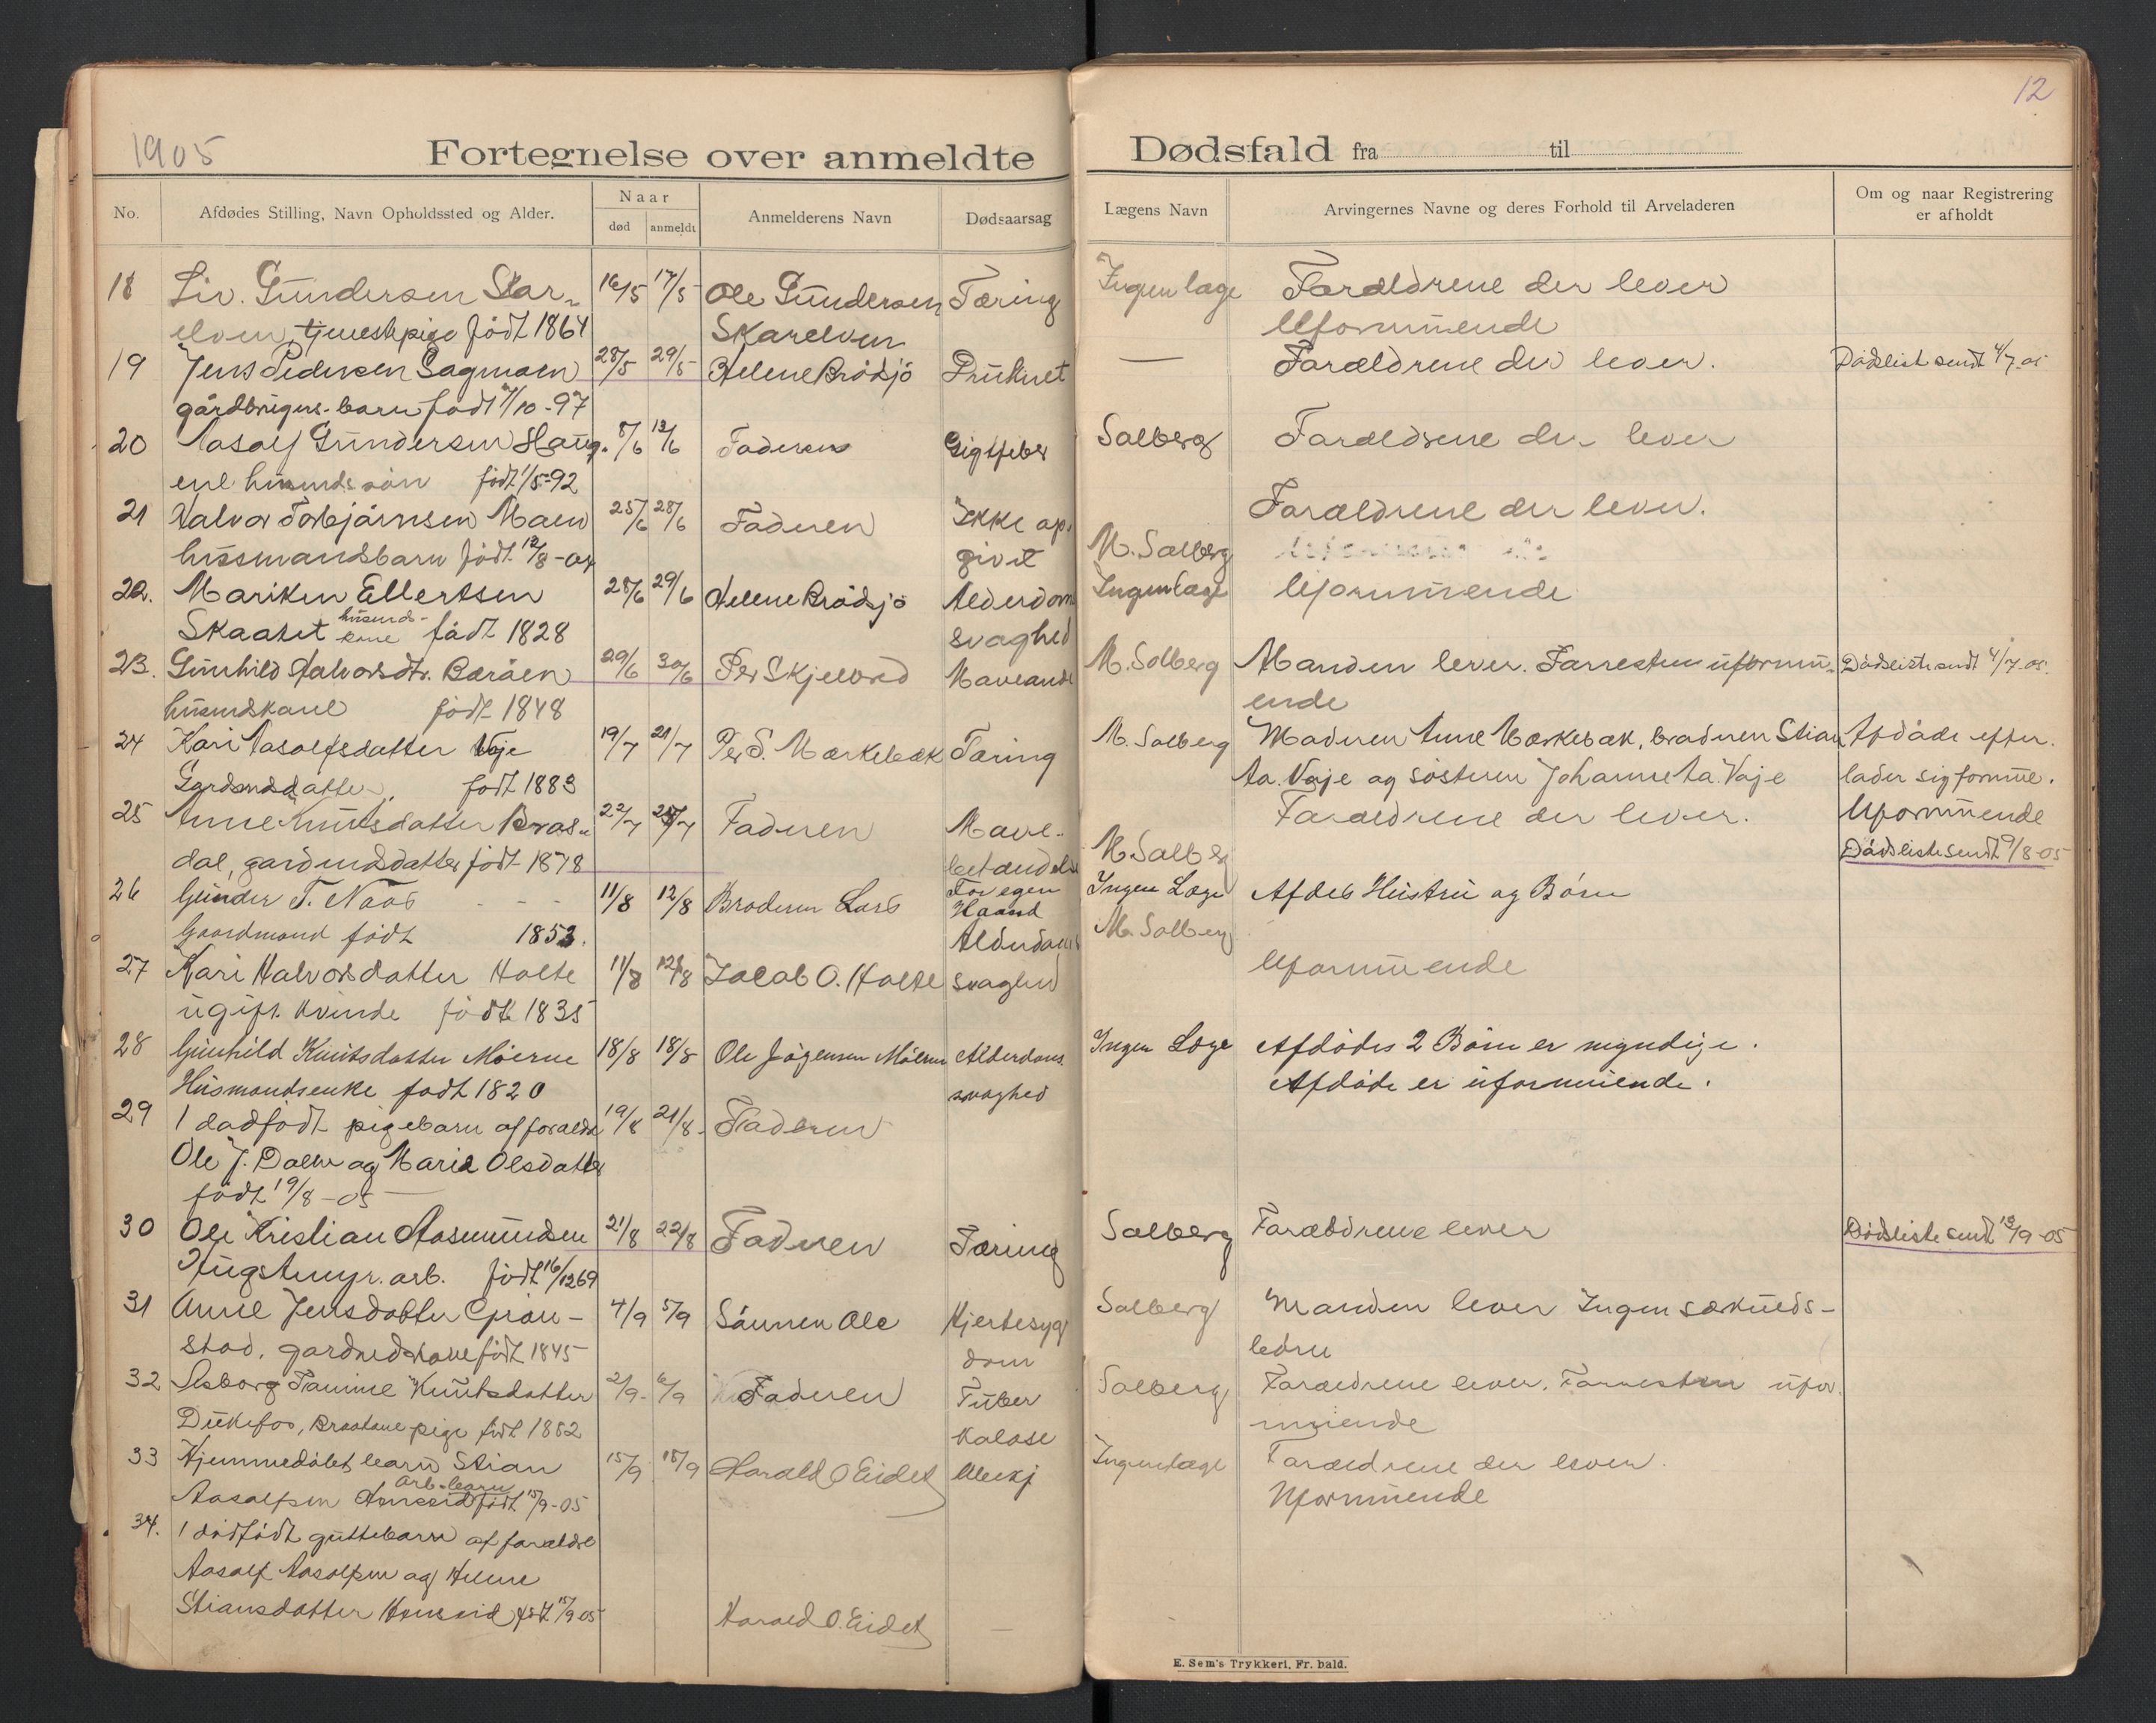 12
1905
Fortegnelse over anmeldte Dødsfald fra til
No.
Afdødes Stilling, Navn Opholdssted og Alder.
Naar
død
anmeldt
Anmelderens Navn
Dødsaarsag
Lægens Navn
Arvingernes Navne og deres Forhold til Arveladeren
Om og naar Registrering
er afholdt
18 Liv. Gundersen Skar- 16/5 17/5 Ole Gundersen Tæring Ingen læge Forældrene der lever
elven, tjenestepige født 1864 Skarelven Uformuende
19 Jens Pedersen Sagmoen 28/5 29/5 Helene Brødsjø Druknet — Forældrene der lever. Dødsliste sendt 4/7-05
gårdbrugers-barn født /10-97
20 Aasolf Gundersen Haug- 8/6 12/6 Faderen Gigtfeber Solberg Forældrene der lever
ene husmdssøn født 1/5-92
21 Halvor Torbjørnsen Moen 25/6 28/6 Faderen Ikke op- Forældrene der lever.
husmandsbarn født 12/8-04 givet M. Solberg
22. Mariken Ellertsen 28/6 29/6 Helene Brødsjø Alderdoms Ingen læge Uformuende
Skaatet husmds-kone født 1828 svaghed
23. Gunhild Halvorsdtr. Børåen 29/6 30/6 Per Skjelbred Maveonde M. Solberg Manden lever. Forresten uformu- Dødsliste sendt 4/7-05.
husmdskone født 1848 ende
24 Kari Aasolfsdatter Vøje 19/7 21/7 Per S. Mærkebæk Tæring M. Solberg Moderen Anne Mærkebæk, broderen Stian Afdøde efter-
Gardmdsdatter, født 1883 Aa. Vøje og søsteren Johanne Aa. Vøje lader sig formue.
25 Anne Knutsdatter Bros- 22/7 25/7 Faderen Mave- Forældrene der lever. Uformuende
dal, gardmdsdatter født 1878 betændelse M. Solberg Dødsliste sendt 9/8-05
26 Gunder T. Naas - - - 11/8 12/8 Broderen Lars For egen Haand Ingen Læge Afdøs Hustru og Børn
Gaardmand født 1853. M. Solberg
27 Kari Halvorsdatter Holte 11/8 12/8 Jacob O. Holte Alderdoms svaghed Uformuende
ugift kvinde født 1835
28 Gunhild Knutsdatter Moerne 18/8 18/8 Ole Jørgensen Moerne Alderdoms Ingen Læge Afdødes 2 Børn er myndige.
Husmandsenke født 1820 svaghed Afdøde er uformuende.
29 1 dødfødt pigebarn af forældre 19/8 21/8 Faderen
Ole J. Dalen og Marie Olsdatter
født 19/8-05
30 Ole Kristian Aasmundsen 21/8 22/8 Faderen Tæring Solberg Forældrene lever Dødsliste sendt 13/9-05
arb. født 16/12 69
31 Anne Jensdatter Grøn- 4/9 5/9 Sønnen Ole Hjertesyg Solberg Manden lever Ingen særkulds-
stad, gardmdskone født 1845 dom børn
32 Asborg Tamine Knutsdatter 2/9 6/9 Faderen Tuber Solberg Forældrene lever. Forresten ufor-
Dukefos, pige født 1882 kolose muende
33 Hjemmedøbt barn Stian 15/9 18/9 Harald O. Eidet Ubekj Ingen læge Forældrene der lever.
Aasolfsen arb.-barn født 15/9-05 Uformuende
34. 1 dødfødt guttebarn af forældre
Aasolf Aasolfsen og Helene
Stiansdatter født 15/9 05 Harald O. Eidet —
E. Sem's Trykkeri, Fr. hald.